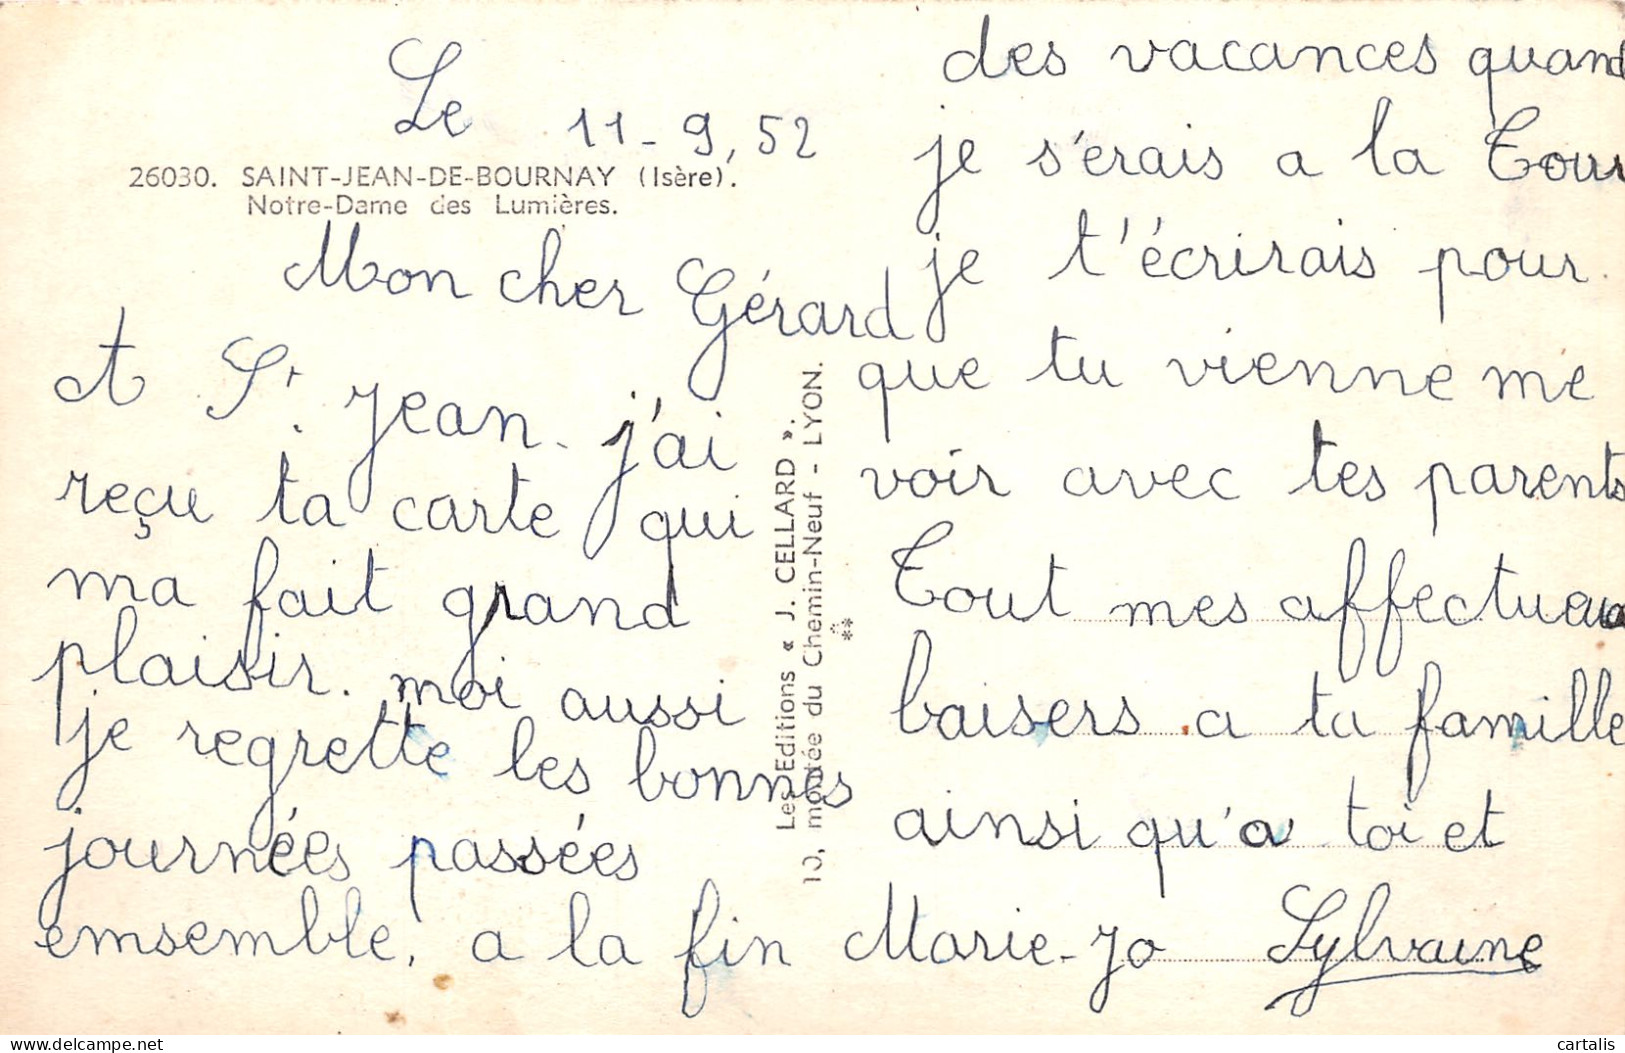 Le 11-9,52
26030. SAINT-JEAN-DE-BOURNAY (Isère).
Notre-Dame des Lumières.
Mon cher Gérard
A St. Jean. j'ai
reçu ta carte qui
ma fait grand
plaisir. moi aussi
je regrette les bonnes
journées passées
ensemble. a la fin
des vacances quand
je s'erais a la Tour
je t'écrirais pour
que tu vienne me
voir avec tes parents
Tout mes affectueux
baisers a ta famille
ainsi qu'a toi et
Marie-Jo Sylvaine
Les Editions « J. CELLARD ».
10, montée du Chemin-Neuf - LYON.
cartalis